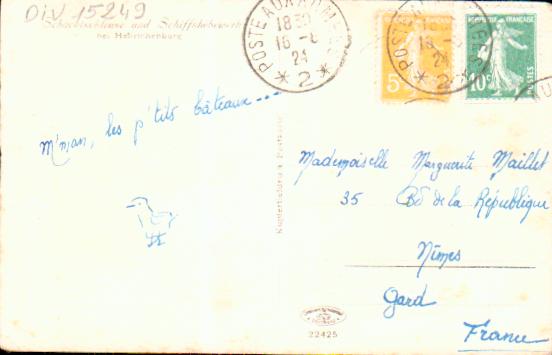 DIV 15249
Schachtschleuse und Schiffshebewerk
bei Henrichenburg
POSTE AUX ARMEES
18 30
16 - 6
24
* 2 *
5c
REPUBLIQUE FRANÇAISE
10c
POSTES
M'man, les p'tits bâteaux ---
Mademoiselle Marguerite Maillet
35 Bd de la République
Nîmes
Gard
France
Kupfertiefdruck
22425